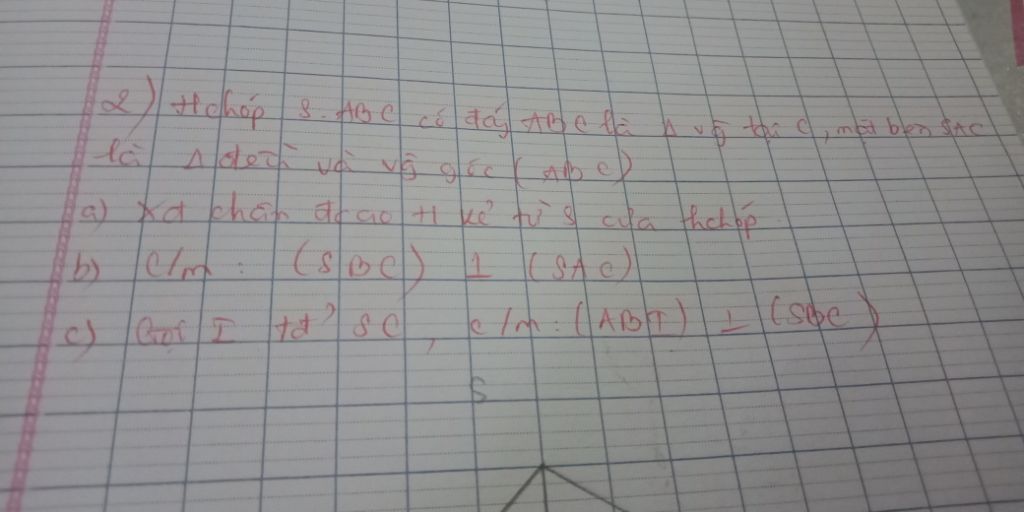 2) Hchóp S.ABC có đáy ABC là Δ vg tại C, mặt bên SAC
là Δ đều và vg góc (ABC)
a) Xđ chân đcao H kẻ từ S của hchóp
b) C/m: (SBC) ⊥ (SAC)
c) Gọi I tđ SC, c/m: (ABI) ⊥ (SBC)
S